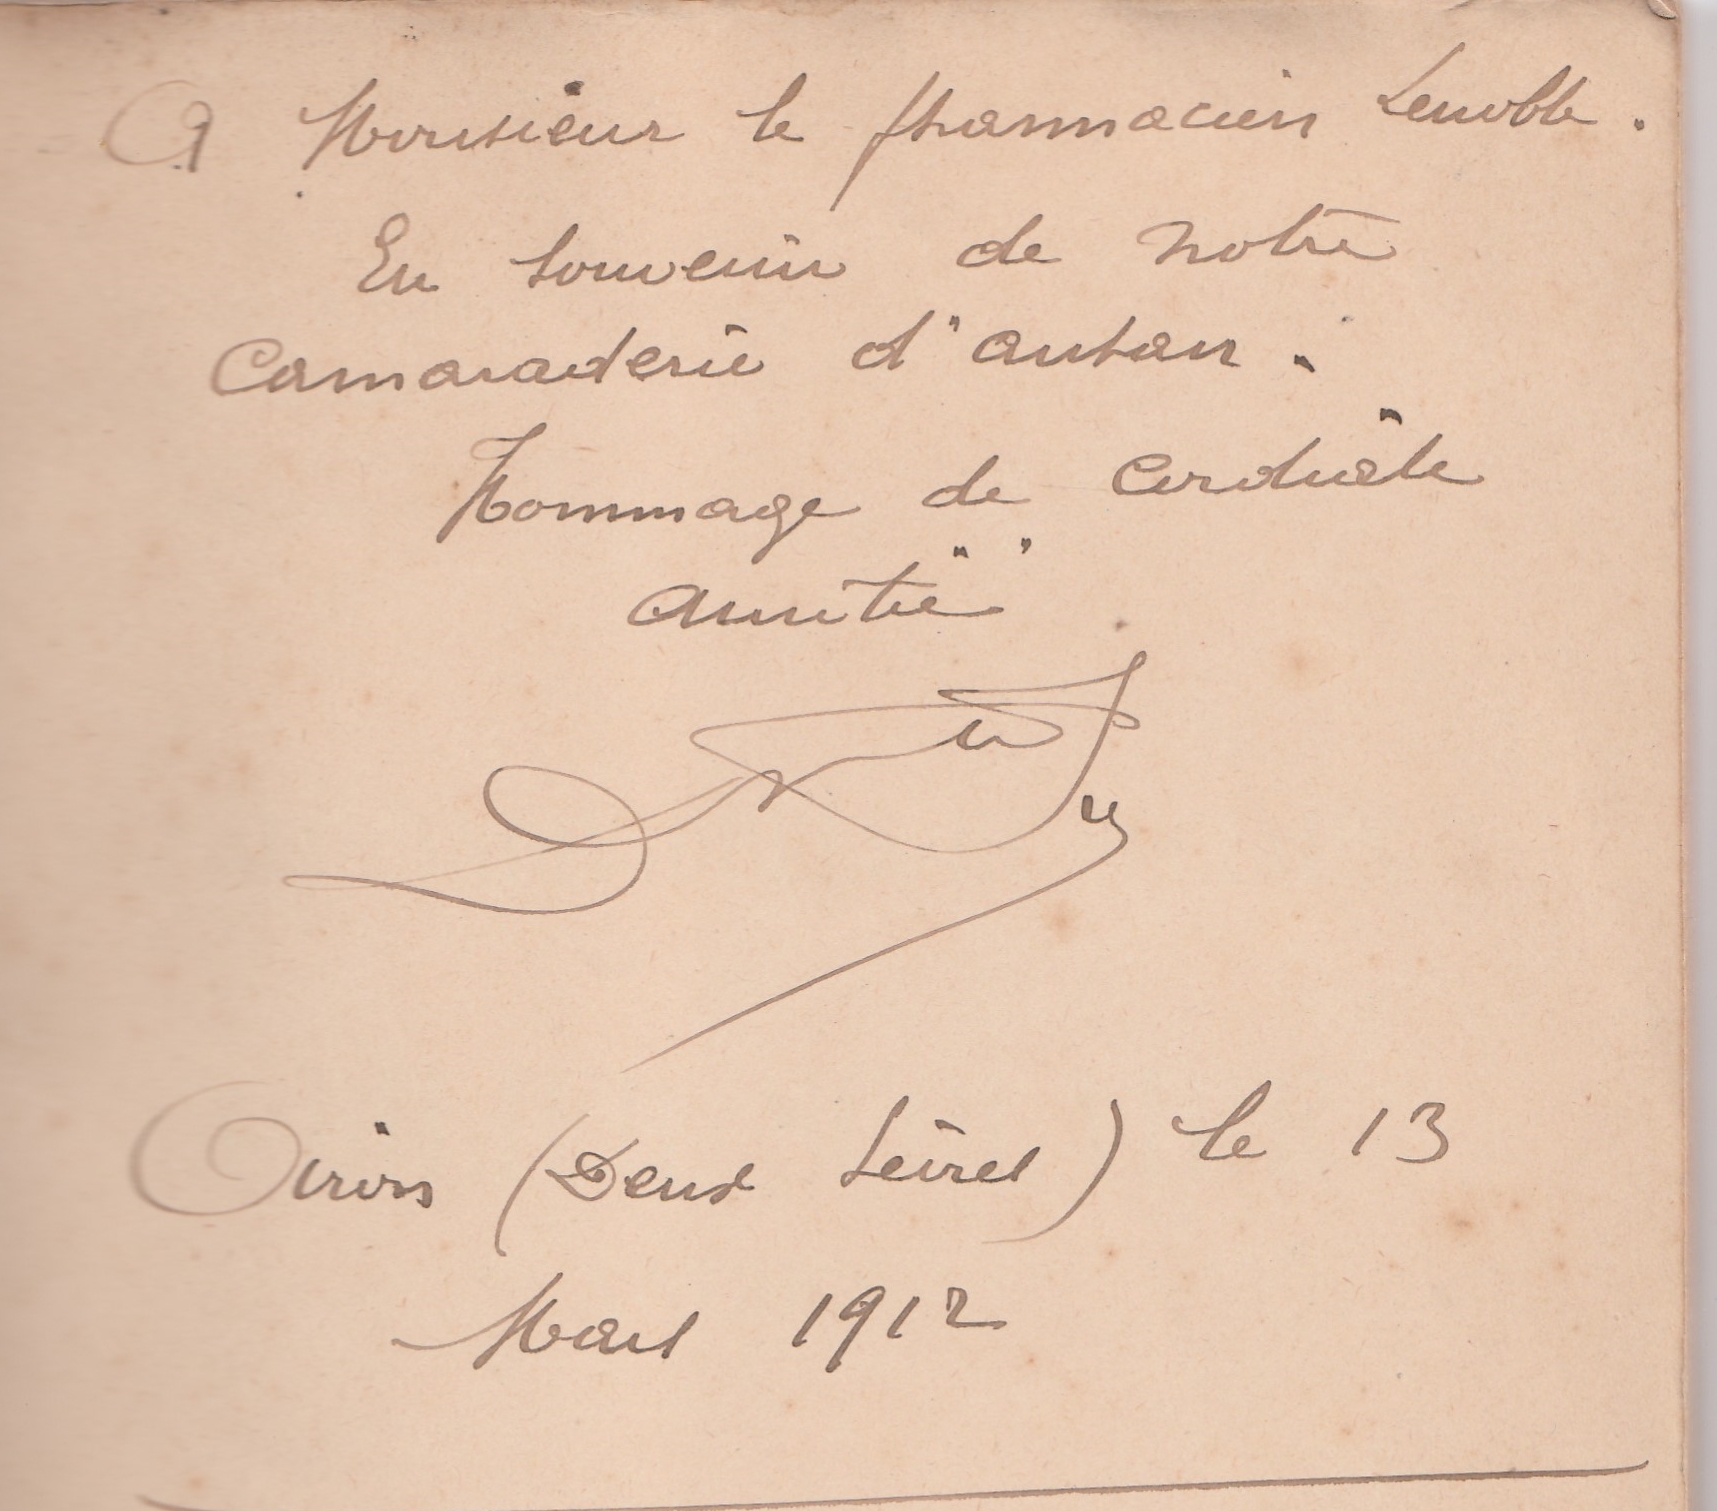 A Monsieur le pharmacien Lenoble.
En souvenir de notre
Camaraderie d'antan.
Hommage de cordiale
amitié
Oiron (Deux Sèvres) le 13
Mars 1912